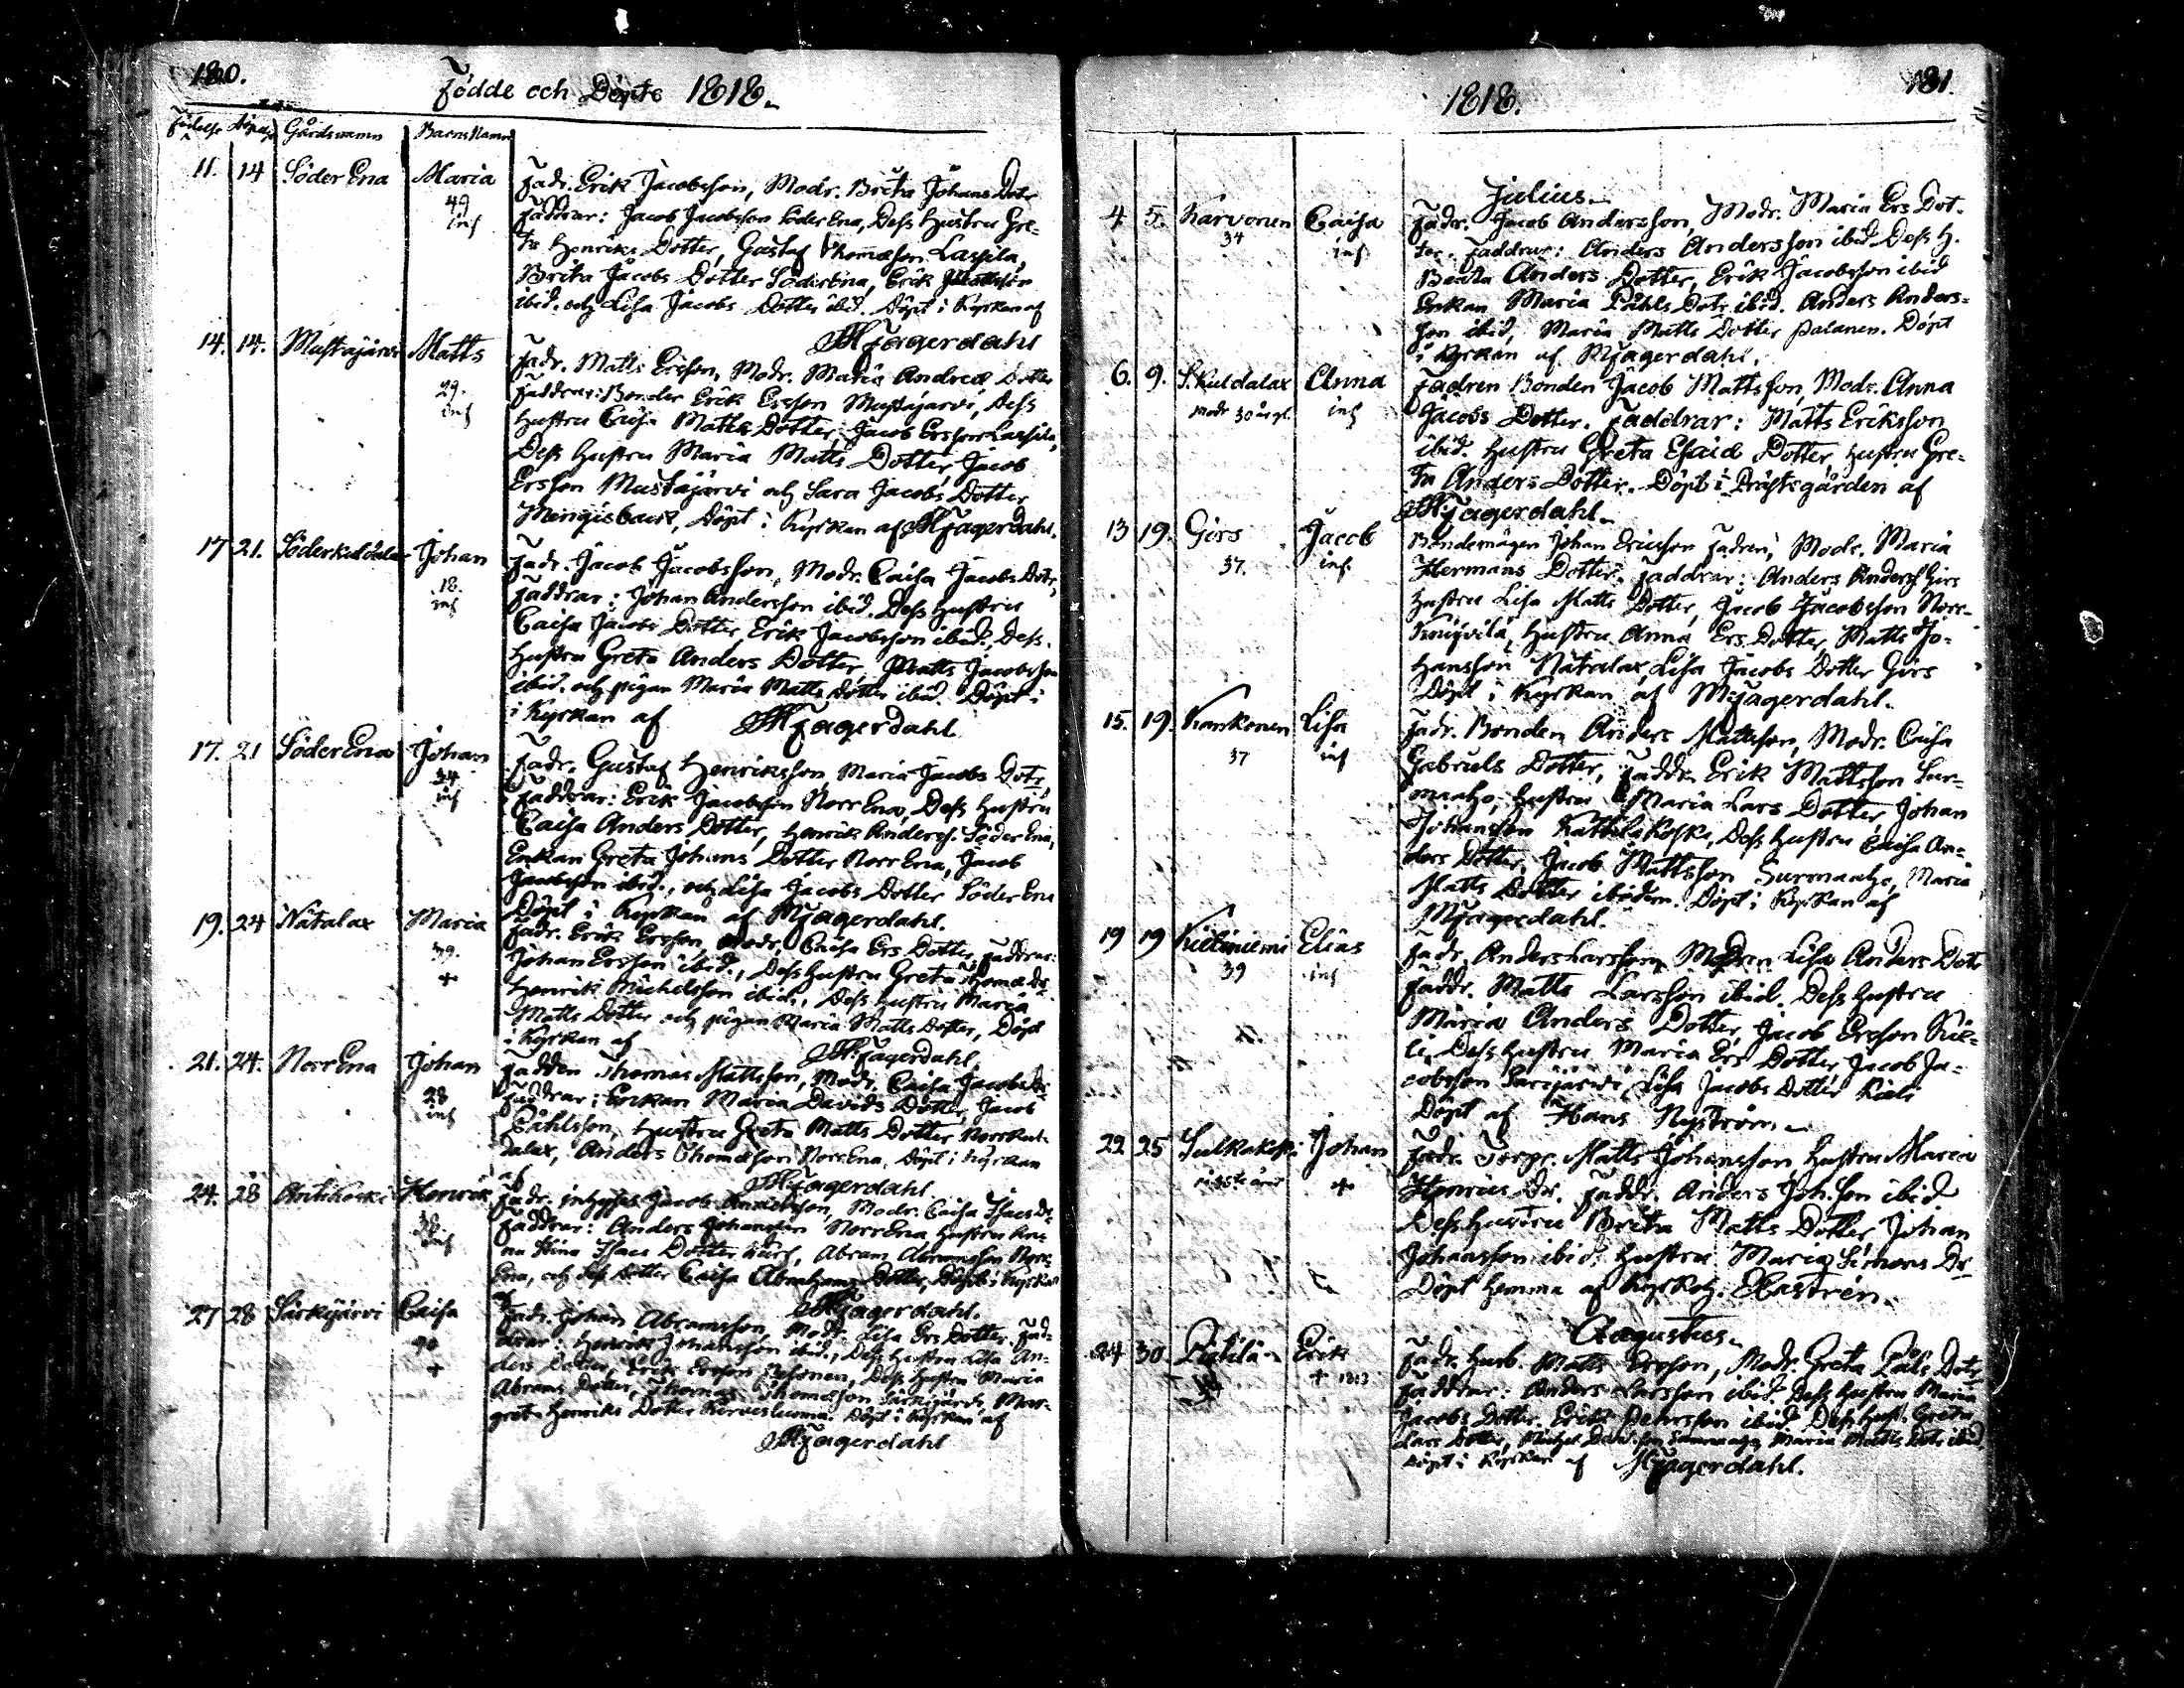 180.
Födde och Döpte 1818.
Födelse Döpelse Gårdsnamn Barns Namn
11. 14 Söder Ena Maria 49 inf
Fadr. Erik Jacobsson, Modr. Brita Johans Dotr
Faddrar: Jacob Jacobsson Söder Ena, Dess Hustru Gre-
ta Henriks Dotter, Gustaf Thomasson Lassila,
Brita Jacobs Dotter Söder Ena, Erik
ibid. och Lisa Jacobs Dotter ibid. Döpt i Kyrkan af
MJagerdahl
14. 14. Mustajärvi Matts 29. inf
Fadr. Matts Ersson, Modr. Maria Andreæ Dotter
Faddrar: Bonden Erik Ersson Mustajarvi, Dess
Hustru Caisa Matts Dotter, Jacob Ersson Lassila,
Dess Hustru Maria Matts Dotter, Jacob
Ersson Mustajärvi och Sara Jacobs Dotter
Döpt i Kyrkan af MJagerdahl.
17 21. Söderkuldalax Johan 18. inf
Fadr. Jacob Jacobsson, Modr. Caisa Jacobs Dotr,
Faddrar: Johan Andersson ibid. Dess Hustru
Caisa Jacobs Dotter, Erik Jacobsson ibid. Dess
Hustru Greta Anders Dotter, Matts Jacobsson
ibid. och pigan Maria Matts Dotter ibid. Döpt i
i Kyrkan af MJagerdahl
17. 21 Söder Ena Johan 34 inf
Fadr. Gustaf Henriksson Maria Jacobs Dotr,
Faddrar: Erik Jacobsson Norr Ena, Dess Hustru
Caisa Anders Dotter, Henrik Anderss. Söder Ena,
Enkan Greta Johans Dotter Norr Ena, Jacob
Jacobsson ibid., och Lisa Jacobs Dotter Söder Ena
Döpt i Kyrkan af MJagerdahl.
19. 24 Nätalax Maria 39. +
Fadr. Erik Ersson, Modr. Caisa Ers Dotter, Faddrar:
Johan Ersson ibid., Dess Hustru Greta Thomæ Dr.
Henrik Michelsson ibid., Dess Hustru Maria
Matts Dotter och pigan Maria Matts Dotter, Döpt
i Kyrkan af MJagerdahl.
21. 24. Norr Ena Johan 28 inf
Fadren Thomas Mattsson, Modr. Caisa Jacobs Dr
Faddrar: Enkan Maria Davids Dotter, Jacob
Påhlsson, Hustru Greta Matts Dotter Norrkul-
dalax, Anders Thomasson Norr Ena. Döpt i Kyrkan
af MJagerdahl.
24. 28 Antikoski Henrik 38. inf
Fadr. Inhyses Jacob Modr. Caisa Isacs Dr.
Faddrar: Anders Johansson Norr Ena Hustru An-
na Stina Isacs Dotter Abram Abramsson Norr
Ena, och dess Dotter Caisa Abrahams Dotter, Döpt i Kyrkan
af MJagerdahl.
27 28 Särkijärvi Caisa 40 +
Fadr. Johan Abramsson, Modr. Lisa Ers Dotter. Fad-
drar: Henrik Johansson ibid., Dess Hustru Lisa An-
ders Dotter, Erik Ersson Dess Hustru Maria
Abrams Dotter, Thomas Thomasson Särkijärvi, Mar-
gret Henriks Dotter Döpt i Kyrkan af
MJagerdahl
1818.
181.
Julius.
4 5. Karvonen 34 Caisa inf
Fadr. Jacob Andersson, Modr. Maria Ers Dot-
ter. Faddrar: Anders Andersson ibid Dess H.
Beata Anders Dotter, Erik Jacobsson ibid
Enkan Maria Påhls Dotr ibid. Anders Anders-
son ibid, Maria Matts Dotter Palanen. Döpt
i Kyrkan af MJagerdahl.
6. 9. S. Kuldalax Modr 30 år gl. Anna inf
Fadren Bonden Jacob Mattsson, Modr. Anna
Jacobs Dotter. Faddrar: Matts Eriksson
ibid. Hustru Greta Esaiæ Dotter, Hustru Gre-
ta Anders Dotter. Döpt i Prästgården af
MJagerdahl.
13 19. Girs 37. Jacob inf
Bondemågen Johan Ericsson Fadren, Modr. Maria
Hermans Dotter. Faddrar: Anders Anderss Girs
Hustru Lisa Matts Dotter, Jacob Jacobsson Norr-
Knuvilä, Hustru Anna Ers Dotter, Matts Jo-
hansson Nätalax, Lisa Jacobs Dotter Girs
Döpt i Kyrkan af MJagerdahl.
15. 19. Kankonen 37 Lisa inf
Fadr. Bonden Anders Mattsson, Modr. Caisa
Gabriels Dotter, Faddr. Erik Mattsson Sur-
maaho, Hustru Maria Lars Dotter, Johan
Johansson Kattilakoski, Dess Hustru Caisa An-
ders Dotter, Jacob Mattsson Surmaaho, Maria
Matts Dotter ibidem. Döpt i Kyrkan af
MJagerdahl.
19 19 Kiiliniemi 39 Elias inf
Fadr. Anders Larsson, Modren Lisa Anders Dotr
Faddr. Matts Larsson ibid. Dess Hustru
Maria Anders Dotter, Jacob Ersson Kii-
li, Dess Hustru Maria Ers Dotter, Jacob Ja-
cobsson Sarijärvi, Lisa Jacobs Dotter Kiili
Döpt af Hans Nyström.
22 25 Sulkakoski Johan +
Fadr. Torpr. Matts Johansson, Hustru Maria
Henrics Dr. Faddr. Anders Joh.son ibid
Dess Hustru Brita Matts Dotter, Johan
Johansson ibid, Hustru Maria Simons Dr
Döpt hemma af Kyrkoh: ECastrén.
Augustus.
24 30 Pihtilä Erik +
Fadr. Husb. Matts Ersson, Modr. Greta Påls Dotr,
Faddrar: Anders Larsson ibid. Dess Hustru Maria
Jacobs Dotter. Erik Pehrsson ibid Dess Hust. Greta
Lars Dotter, Maria Matts Dotr ibid.
Döpt i Kyrkan af MJagerdahl.